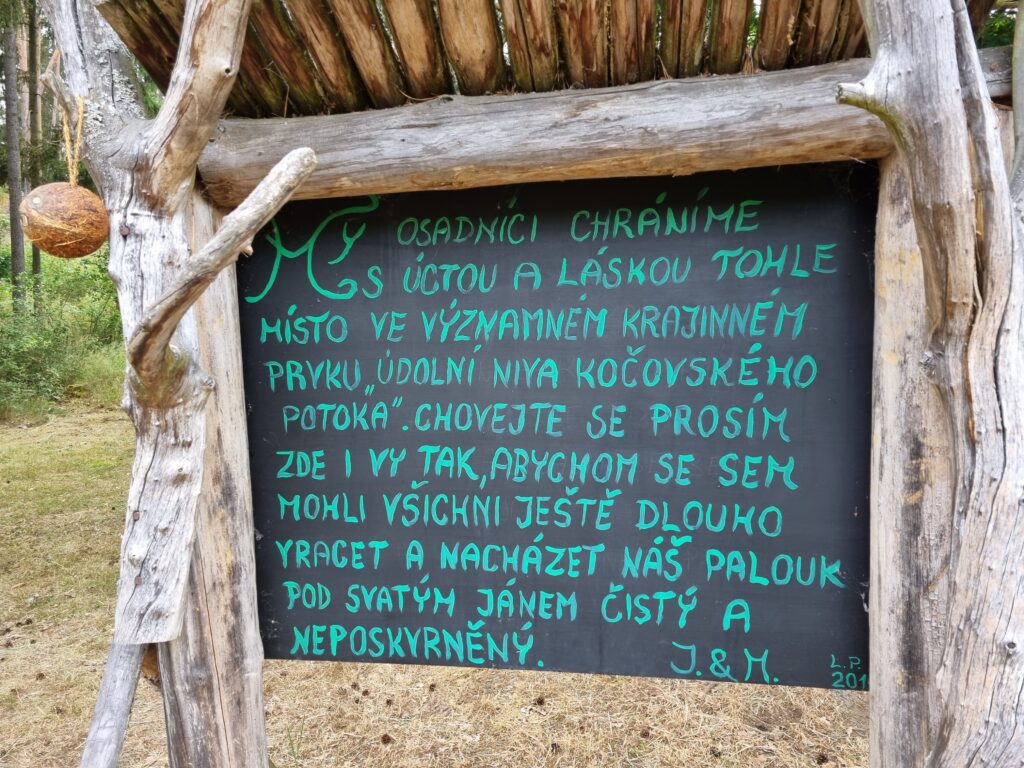 MY OSADNÍCI CHRÁNÍME
S ÚCTOU A LÁSKOU TOHLE
MÍSTO VE VÝZNAMNÉM KRAJINNÉM
PRVKU „ÚDOLNÍ NIVA KOČOVSKÉHO
POTOKA“. CHOVEJTE SE PROSÍM
ZDE I VY TAK, ABYCHOM SE SEM
MOHLI VŠICHNI JEŠTĚ DLOUHO
VRACET A NACHÁZET NÁŠ PALOUK
POD SVATÝM JÁNEM ČISTÝ A
NEPOSKVRNĚNÝ.
J. & M.
L.P.